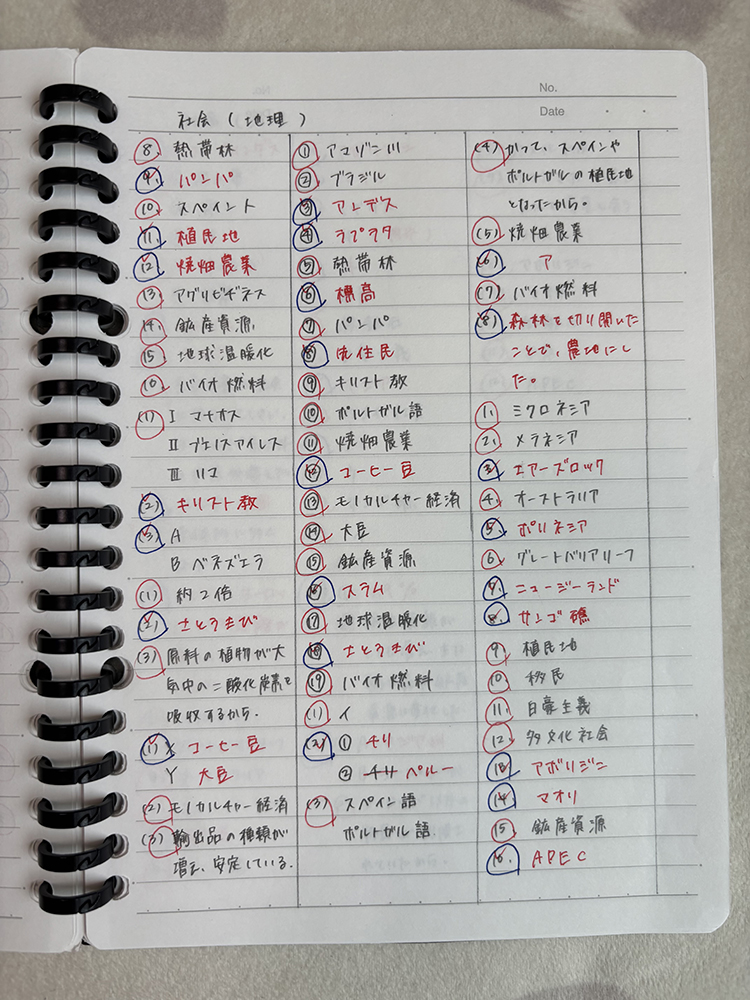 No.
Date
社会(地理)
8. 熱帯林
9. パンパ
10 スペイント
11. 植民地
12 焼畑農業
13. アグリビヂネス
14. 鉱産資源
15 地球温暖化
10 バイオ燃料
(1) I マナオス
II ブェノスアイレス
III リマ
(2) キリスト教
(3) A
B ベネズエラ
(1) 約2倍
(2) さとうきび
(3) 原料の植物が大
気中の二酸化炭素を
吸収するから.
(1) X コーヒー豆
Y 大豆
(2) モノカルチャー経済
(3) 輸出品の種類が
増え、安定している.
① アマゾン川
② ブラジル
③ アンデス
④ ラプラタ
⑤ 熱帯林
⑥ 標高
⑦ パンパ
⑧ 先住民
⑨ キリスト教
⑩ ポルトガル語
⑪ 焼畑農業
⑫ コーヒー豆
⑬ モノカルチャー経済
⑭ 大豆
⑮ 鉱産資源
⑯ スラム
⑰ 地球温暖化
⑱ さとうきび
⑲ バイオ燃料
(1) イ
(2) ① チリ
② ペルー
(3) スペイン語
ポルトガル語.
(4) かつて、スペインや
ポルトガルの植民地
となったから。
(5) 焼畑農業
(6) ア
(7) バイオ燃料
(8) 森林を切り開いた
ことで、農地にし
た。
1. ミクロネシア
2. メラネシア
3. エアーズロック
4 オーストラリア
5. ポリネシア
6 グレートバリアリーフ
7. ニュージーランド
8. サンゴ礁
9 植民地
10 移民
11. 白豪主義
12 多文化社会
13 アボリジニ
14 マオリ
15 鉱産資源
16. APEC